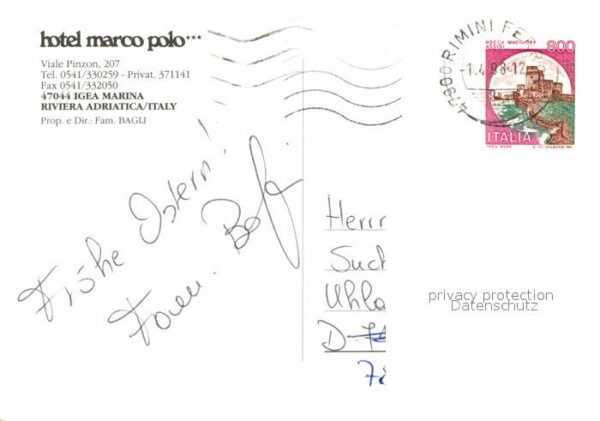 hotel marco polo***
Viale Pinzon, 207
Tel. 0541/330259 - Privat. 371141
Fax 0541/332050
47044 IGEA MARINA
RIVIERA ADRIATICA/ITALY
Prop. e Dir.: Fam. BAGLI
47900 RIMINI FE
-1.4.98-12
ROCCA MAGGIORE
ASSISI
800
ITALIA
Fröhe Ostern!
Fam.
Herrn
Such
Uhla
D-
78
privacy protection
Datenschutz